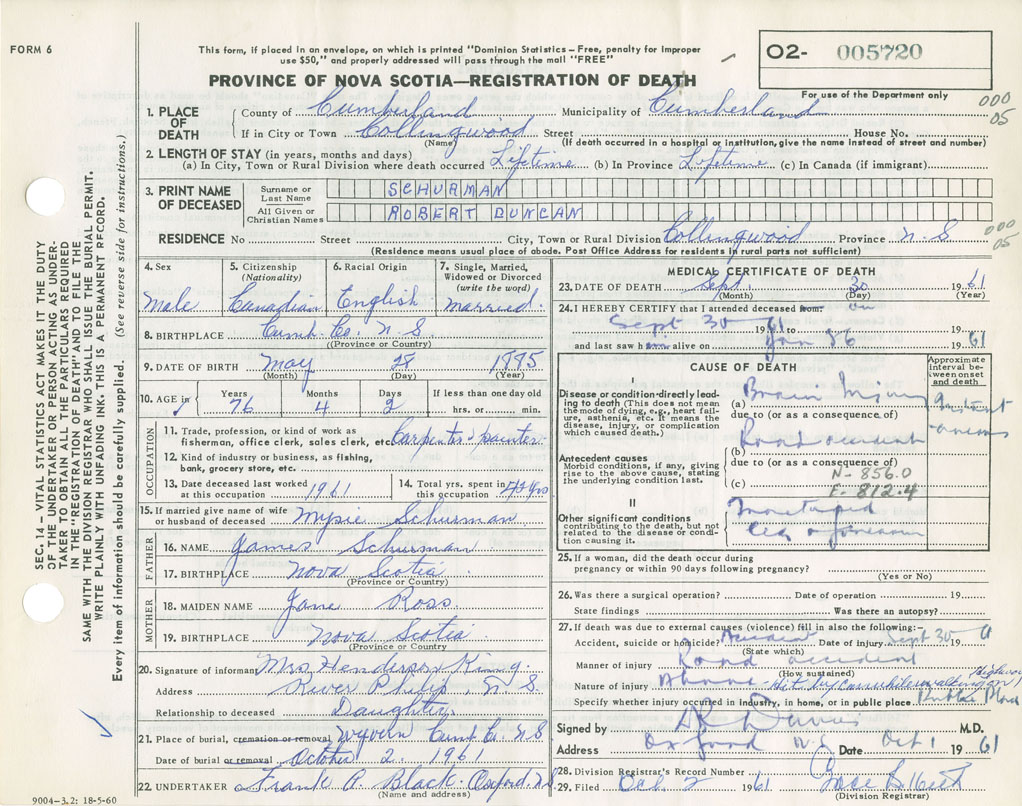 FORM 6
This form, if placed in an envelope, on which is printed "Dominion Statistics – Free, penalty for improper
use $50," and properly addressed will pass through the mail "FREE"
O2- 005720
PROVINCE OF NOVA SCOTIA—REGISTRATION OF DEATH
For use of the Department only
000
05
1. PLACE OF DEATH
County of Cumberland Municipality of Cumberland
If in City or Town Collingwood Street House No.
(Name) (If death occurred in a hospital or institution, give the name instead of street and number)
2. LENGTH OF STAY (in years, months and days)
(a) In City, Town or Rural Division where death occurred Lifetime (b) In Province Lifetime (c) In Canada (if immigrant)
3. PRINT NAME OF DECEASED
Surname or Last Name SCHURMAN
All Given or Christian Names ROBERT DUNCAN
RESIDENCE No Street City, Town or Rural Division Collingwood Province N.S
000
05
(Residence means usual place of abode. Post Office Address for residents in rural parts not sufficient)
4. Sex
Male
5. Citizenship (Nationality)
Canadian
6. Racial Origin
English
7. Single, Married, Widowed or Divorced (write the word)
Married
8. BIRTHPLACE Cumb. Co. N.S
(Province or Country)
9. DATE OF BIRTH May 28 1885
(Month) (Day) (Year)
10. AGE in
Years Months Days If less than one day old
76 4 2 hrs. or min.
OCCUPATION
11. Trade, profession, or kind of work as
fisherman, office clerk, sales clerk, etc. Carpenter & painter
12. Kind of industry or business, as fishing,
bank, grocery store, etc.
13. Date deceased last worked
at this occupation 1961
14. Total yrs. spent in
this occupation
15. If married give name of wife
or husband of deceased Mysie Schurman
FATHER
16. NAME James Schurman
17. BIRTHPLACE Nova Scotia
(Province or Country)
MOTHER
18. MAIDEN NAME Jane Ross
19. BIRTHPLACE Nova Scotia
(Province or Country
20. Signature of informant Mrs. Henderson King
Address River Philip, N.S
Relationship to deceased Daughter
21. Place of burial, cremation or removal Wyvern Cumb. Co. N S
Date of burial or removal October 2, 1961
22. UNDERTAKER Frank A. Black Oxford, N.S
(Name and address)
9004-3.2: 18-5-60
MEDICAL CERTIFICATE OF DEATH
23. DATE OF DEATH Sept. 30 1961
(Month) (Day) (Year)
24. I HEREBY CERTIFY that I attended deceased from: on
Sept 30 1961 to 19
and last saw him alive on 1961
CAUSE OF DEATH
Approximate interval between onset and death
I
Disease or condition directly leading to death (This does not mean
the mode of dying, e.g., heart failure, asthenia, etc. It means the
disease, injury, or complication
which caused death.)
(a) Brain Injury
due to (or as a consequence of)
Road accident
(b)
Antecedent causes
Morbid conditions, if any, giving
rise to the above cause, stating
the underlying condition last.
due to (or as a consequence of)
N-856.0
(c)
E-812.4
II
Other significant conditions
contributing to the death, but not
related to the disease or condition causing it.
25. If a woman, did the death occur during
pregnancy or within 90 days following pregnancy?
(Yes or No)
26. Was there a surgical operation? Date of operation 19
State findings Was there an autopsy?
27. If death was due to external causes (violence) fill in also the following:–
Accident, suicide or homicide? Accident Date of injury Sept 30 61
(State which)
Manner of injury Road accident
(How sustained)
Nature of injury Above - Hit by car while walking on Highway
Specify whether injury occurred in industry, in home, or in public place Public Place
Signed by M.D.
Address Oxford N.S Date Oct 1 1961
28. Division Registrar's Record Number
29. Filed Oct. 2 1961
(Division Registrar)
SEC. 14 – VITAL STATISTICS ACT MAKES IT THE DUTY
OF THE UNDERTAKER OR PERSON ACTING AS UNDER-
TAKER TO OBTAIN ALL THE PARTICULARS REQUIRED
IN THE "REGISTRATION OF DEATH" AND TO FILE THE
SAME WITH THE DIVISION REGISTRAR WHO SHALL ISSUE THE BURIAL PERMIT.
WRITE PLAINLY WITH UNFADING INK. THIS IS A PERMANENT RECORD.
Every item of information should be carefully supplied. (See reverse side for instructions.)